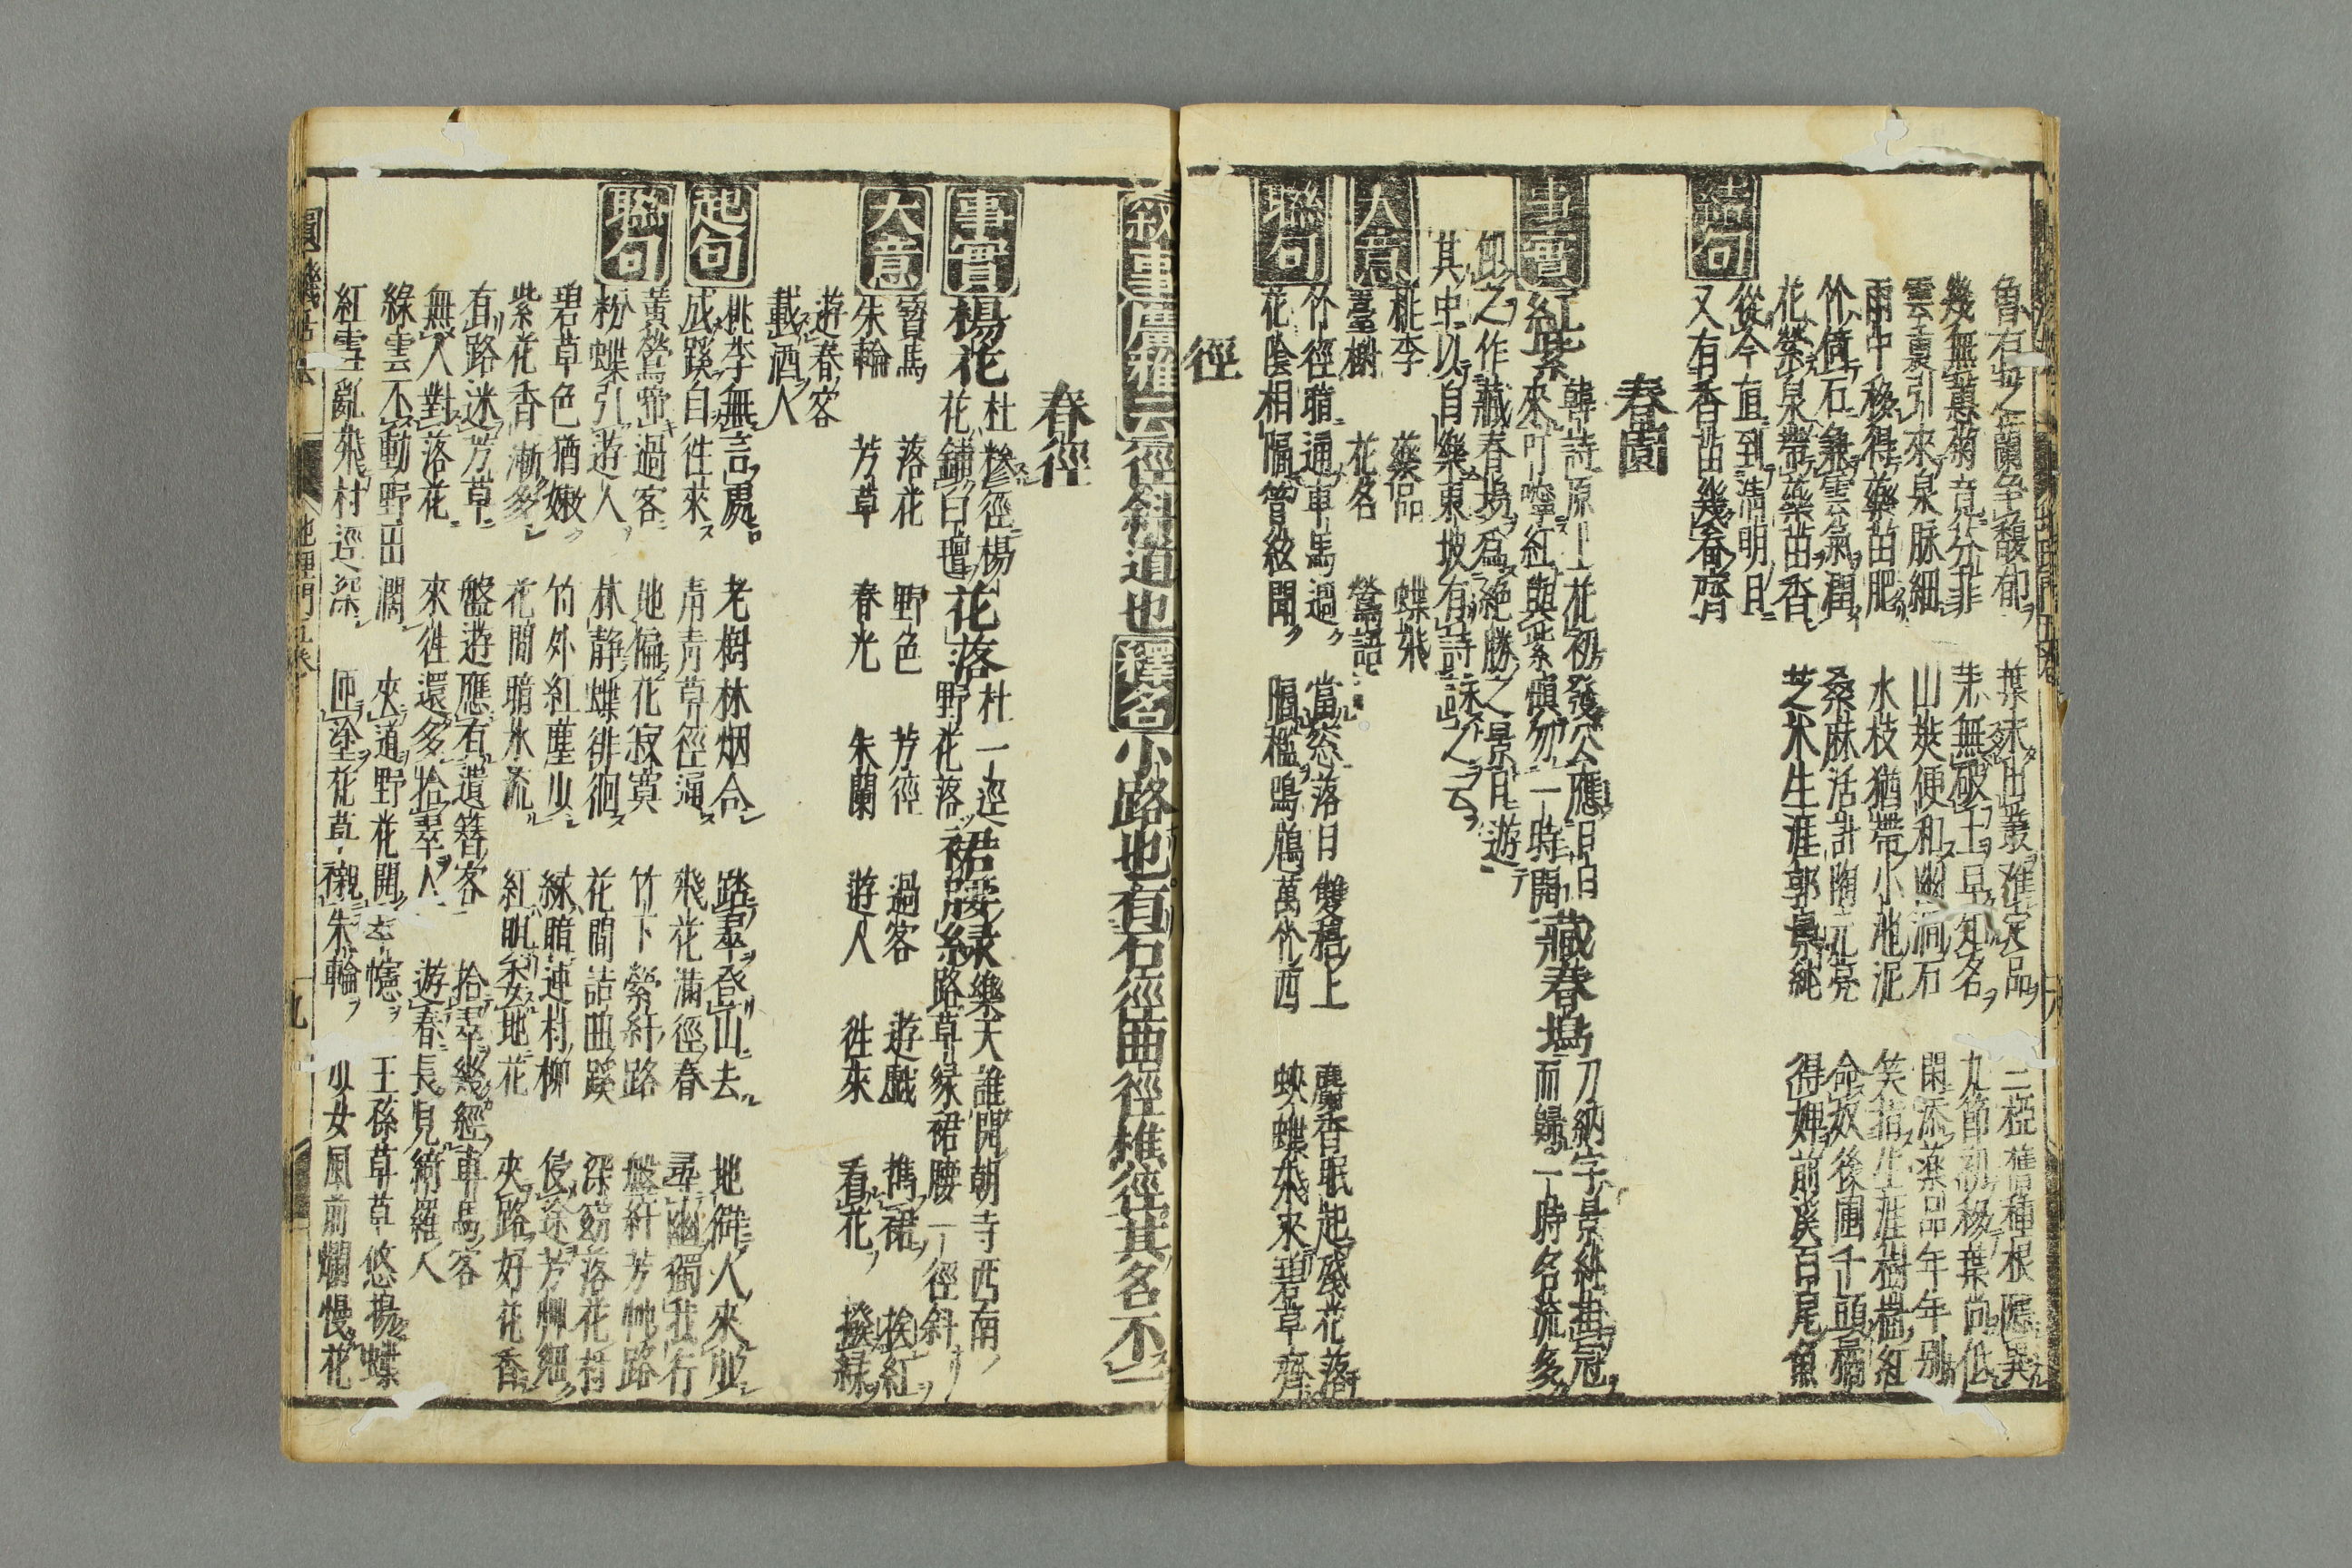 葉未出叢難定品
三椏舊種根應異
幾無蕙菊竟分菲
芽無破土早知名
九節初移葉尚低
雲裏引來泉脉細
山莢便和幽澗石
閑添藥品年年別
雨中移得藥苗肥
水枝猶帶小池泥
笑指生涯樹樹紅
竹倚石兼雲氣潤
桑麻活計陶元亮
命奴後圃千頭橘
花縈泉帶藥苗香
芝术生涯郭橐駝
得婢前溪百尾魚
結句
從今直到清明日
又有香苗幾番齊
春園
事實
紅紫
韓詩原上花初發公應日日
來叮嚀紅與紫愼勿一時開
藏春塢
刀納字景純葺冠
而歸一時名流多
卸之作藏春塢爲絶勝之景日遊
其中以自樂東坡有詩詠之云
大意
桃李
藥品
蝶飛
臺榭
花名
鶯語
聯句
竹徑暗通車馬過
當窓落日雙穗上
麝香眠起殘花落
花陰相隔管絃聞
隔檻鳴鳩萬竹西
蛺蝶飛來碧草齊
徑
叙事
廣雅云徑斜道也
釋名
小路也有石徑曲徑樵徑其名不一
春徑
事實
楊花
杜糝徑楊
花鋪白氊
花落
杜一逕
野花落
裙腰綠
樂天誰開朝寺西南
路草綠裙腰一徑斜
大意
寶馬
落花
野色
芳徑
過客
遊戲
携裙
挨紅
朱輪
芳草
春光
朱蘭
遊人
徃來
看花
撥綠
遊春客
載酒人
起句
桃李無言處
老樹林烟合
踏翠登山去
地僻人來少
成蹊自徃來
靑靑草徑逼
飛花滿徑春
尋幽獨我行
聯句
黃鶯啼過客
地偏花寂寞
竹下縈紆路
盤紆芳艸路
粉蝶引遊人
林靜蝶徘徊
花間詰曲蹊
深窈落花村
碧草色猶嫩
竹外紅塵少
綠暗連村柳
侵途芳艸細
紫花香漸多
花間暗水流
紅明委地花
夾路好花香
有路迷芳草
盤遊應有遺簪客
拾翠幾經車馬客
無人對落花
來徃還多拾翠人
遊春長見綺羅人
綠雲不動野田濶
夾道野花開
王孫草草悠揚蝶
紅雪亂飛村逕深
匝塗花草襯朱輪
少女風前爛慢花